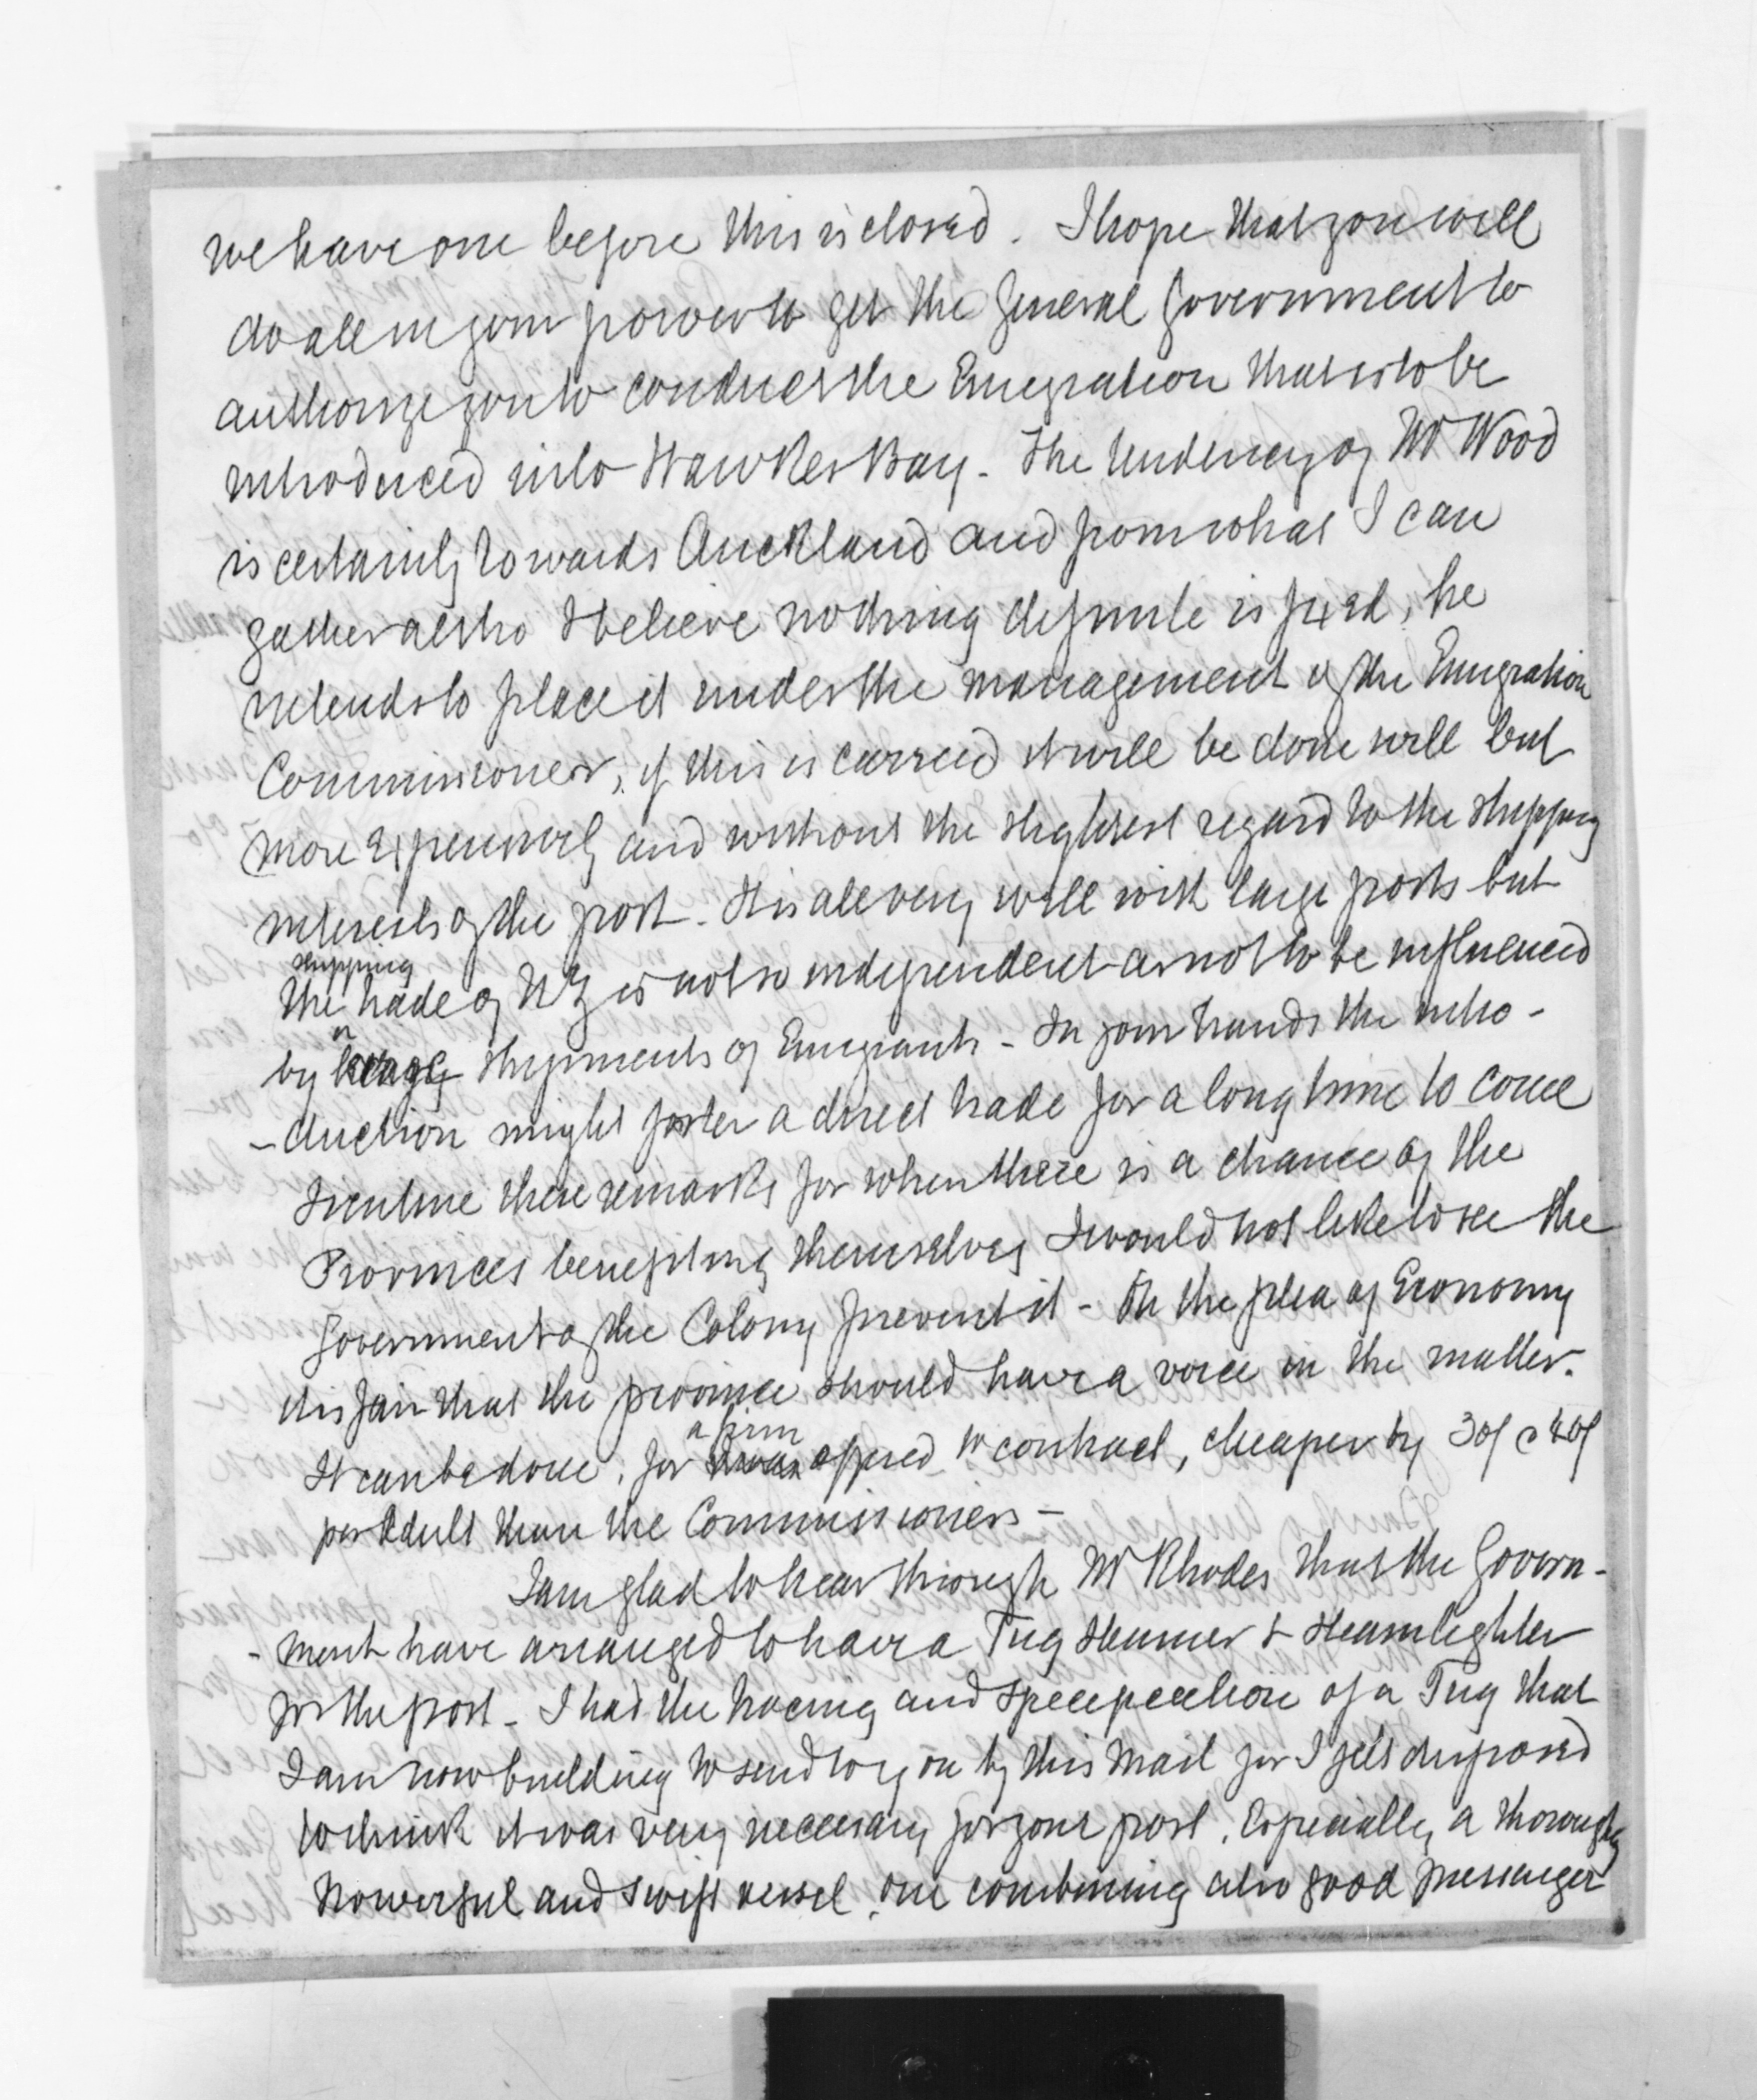 we have one before this is closed. I hope that you will
do all in your power to get the General Government to
authorize you to conduct the Emigration that is to be
introduced into Hawkes Bay. The tendency of Mr Wood
is certainly towards Auckland and from what I can
gather altho I believe nothing definite is fixed, he
intends to place it under the management of the Emigration
Commissioners, if this is carried it will be done well but
more expensively and without the slightest regard to the shipping
interests of the port. It is all very well with large ports but
shipping
the trade of NZ is not so independent as not to be influenced
by shipments of Emigrants - In your hands the intro-
-duction might foster a direct trade for a long time to come
I venture these remarks for when there is a chance of the
Provinces benefiting themselves I would not like to see the
Government of the Colony prevent it - On the plea of Economy
it is fair that the province should have a voice in the matter.
a firm
It can be done, for offered to contract, cheaper by 30/ @ 40/
per Adult than the Commissioners -
I am glad to hear through Mr Rhodes that the Govern-
-ment have arranged to have a Tug Steamer & Steam lighter
for the port - I had the tracing and specification of a Tug that
I am now building to send to you by this mail for I felt disposed
to think it was very necessary for your port. Especially, a thoroughly
Powerful and swift vessel, one combining also good passenger